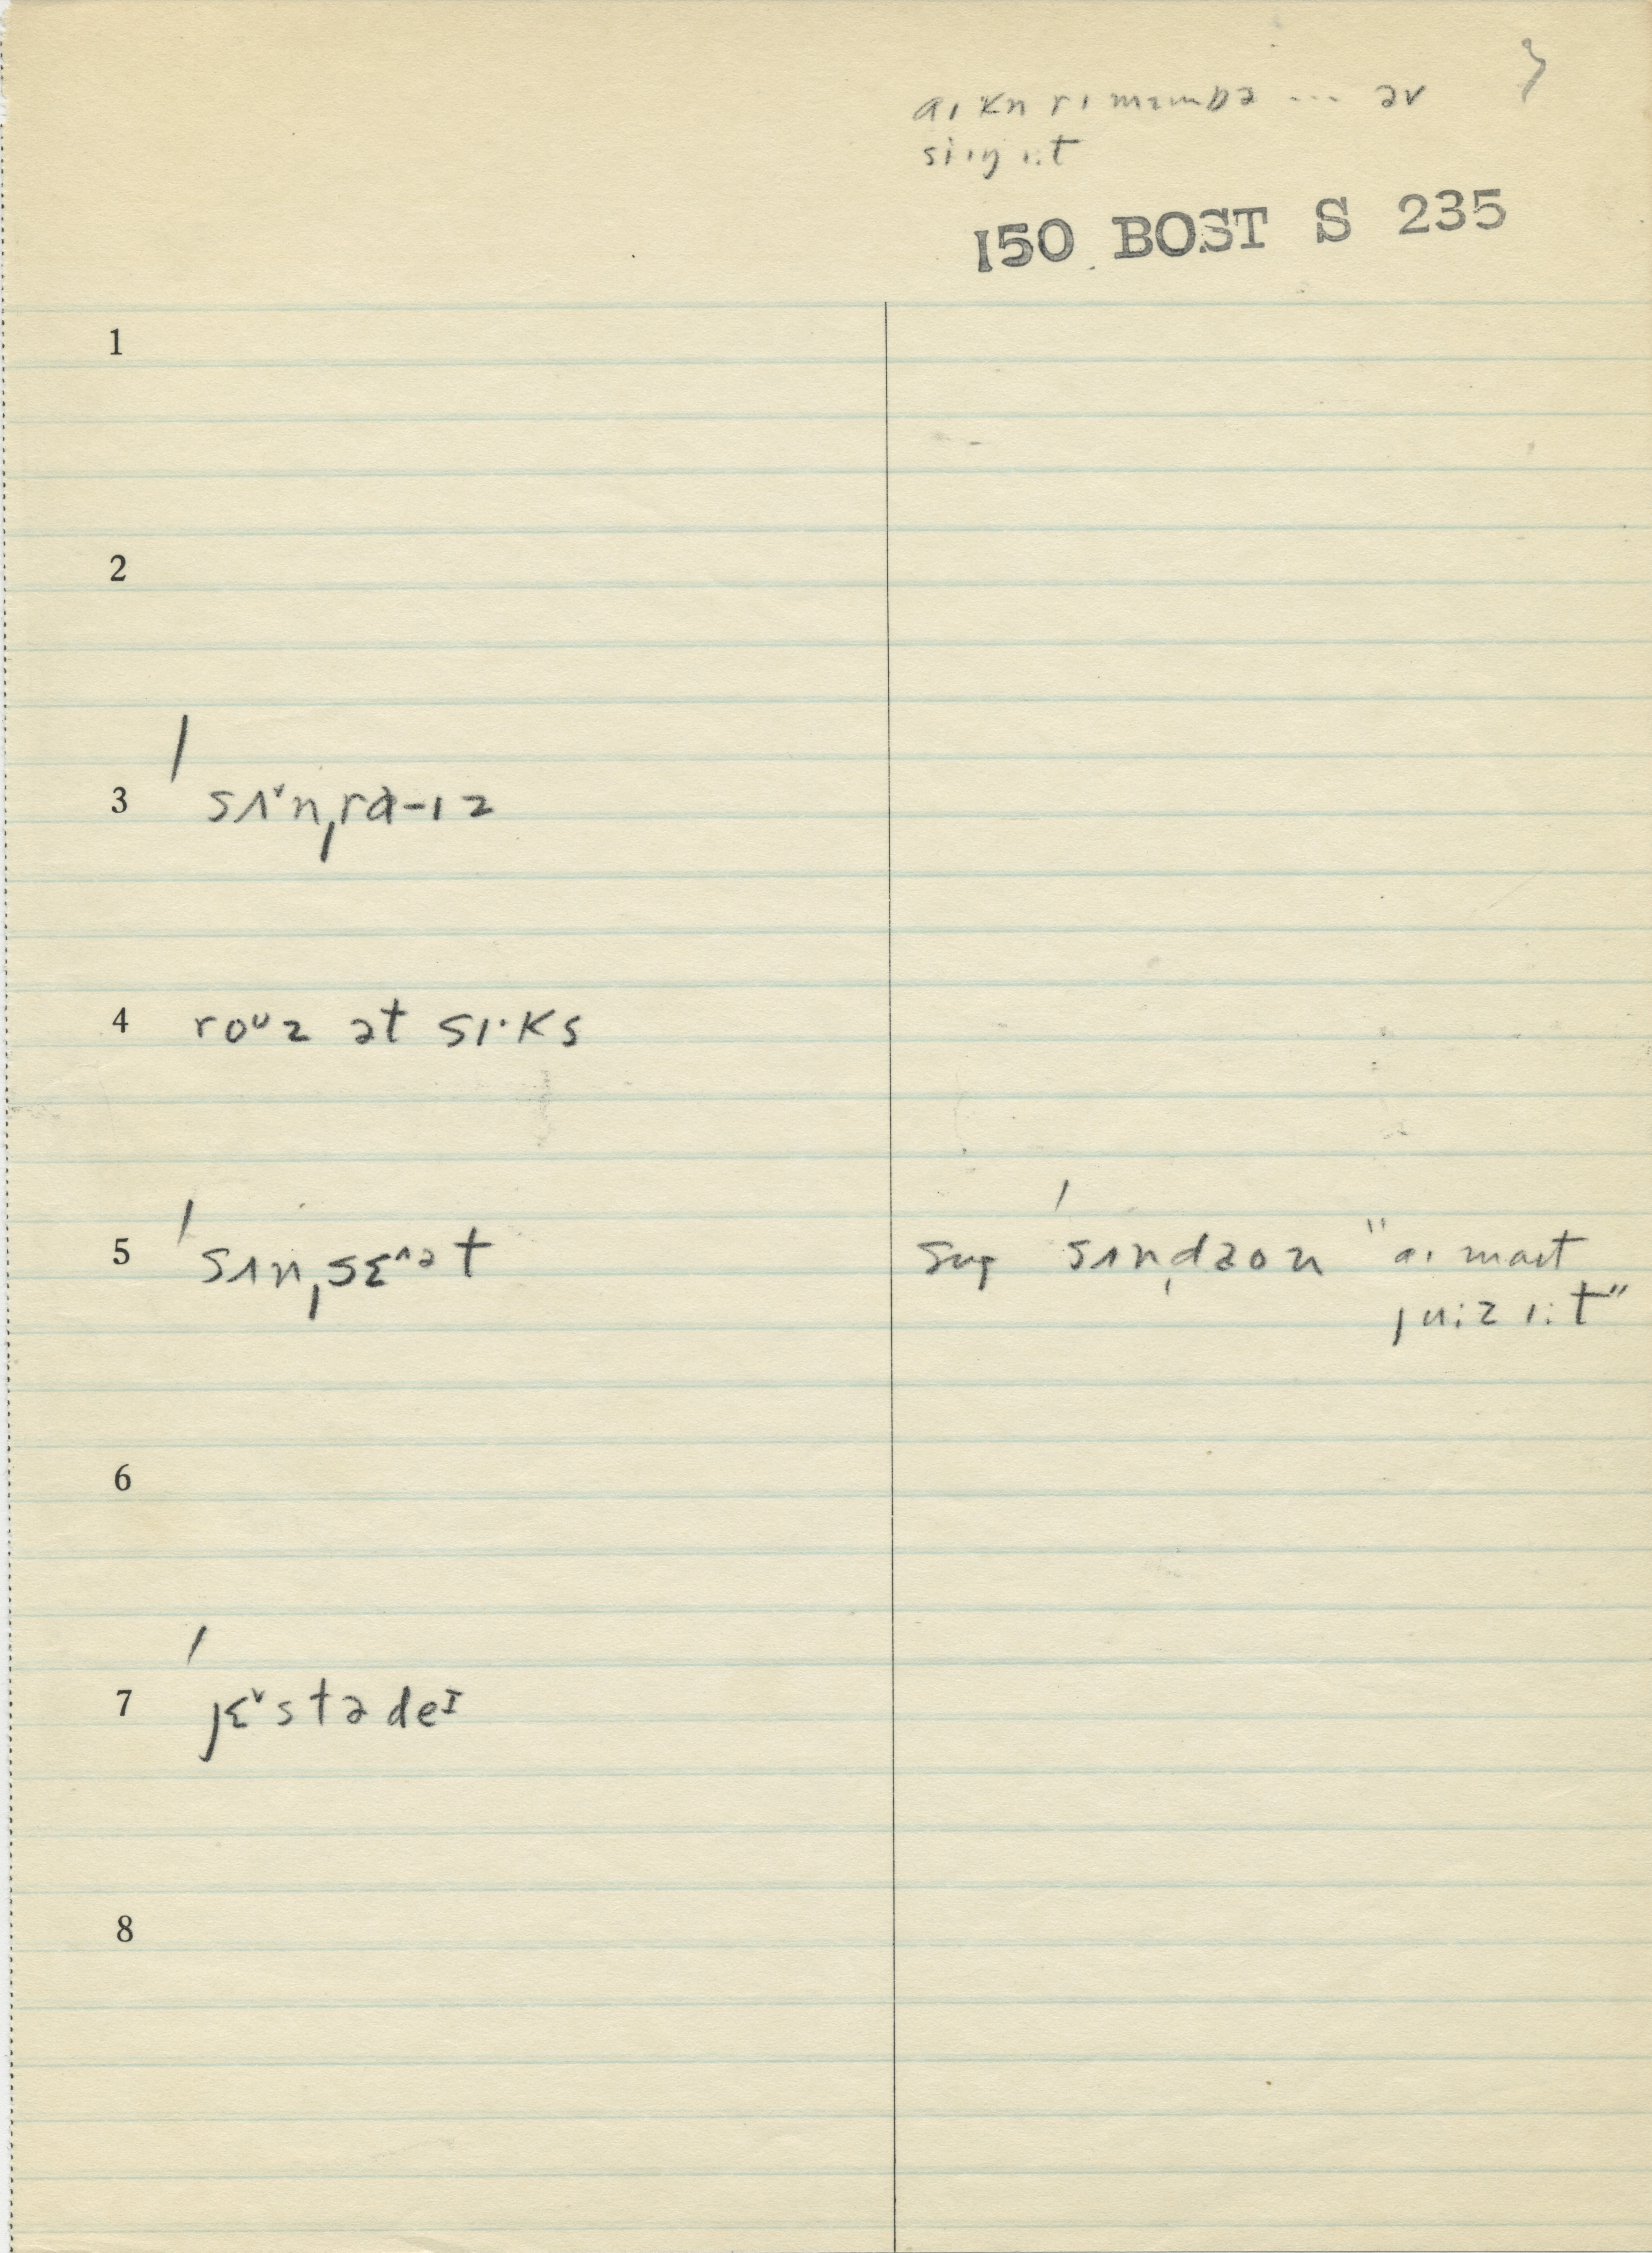 aɪ kn rɪmɛmbə ... əv
siɪŋ ɪ:t
150 BOST S 235
1
2
3 ˈsʌ˅nˌra-ɪz
4 roᶷz ət sɪ·ks
5 ˈsʌnˌsɛ^ət
sug ˈsʌnˌdaon "aɪ maɪt
ju:z ɪ:t"
6
7 ˈjɛ˅stədeɪ
8